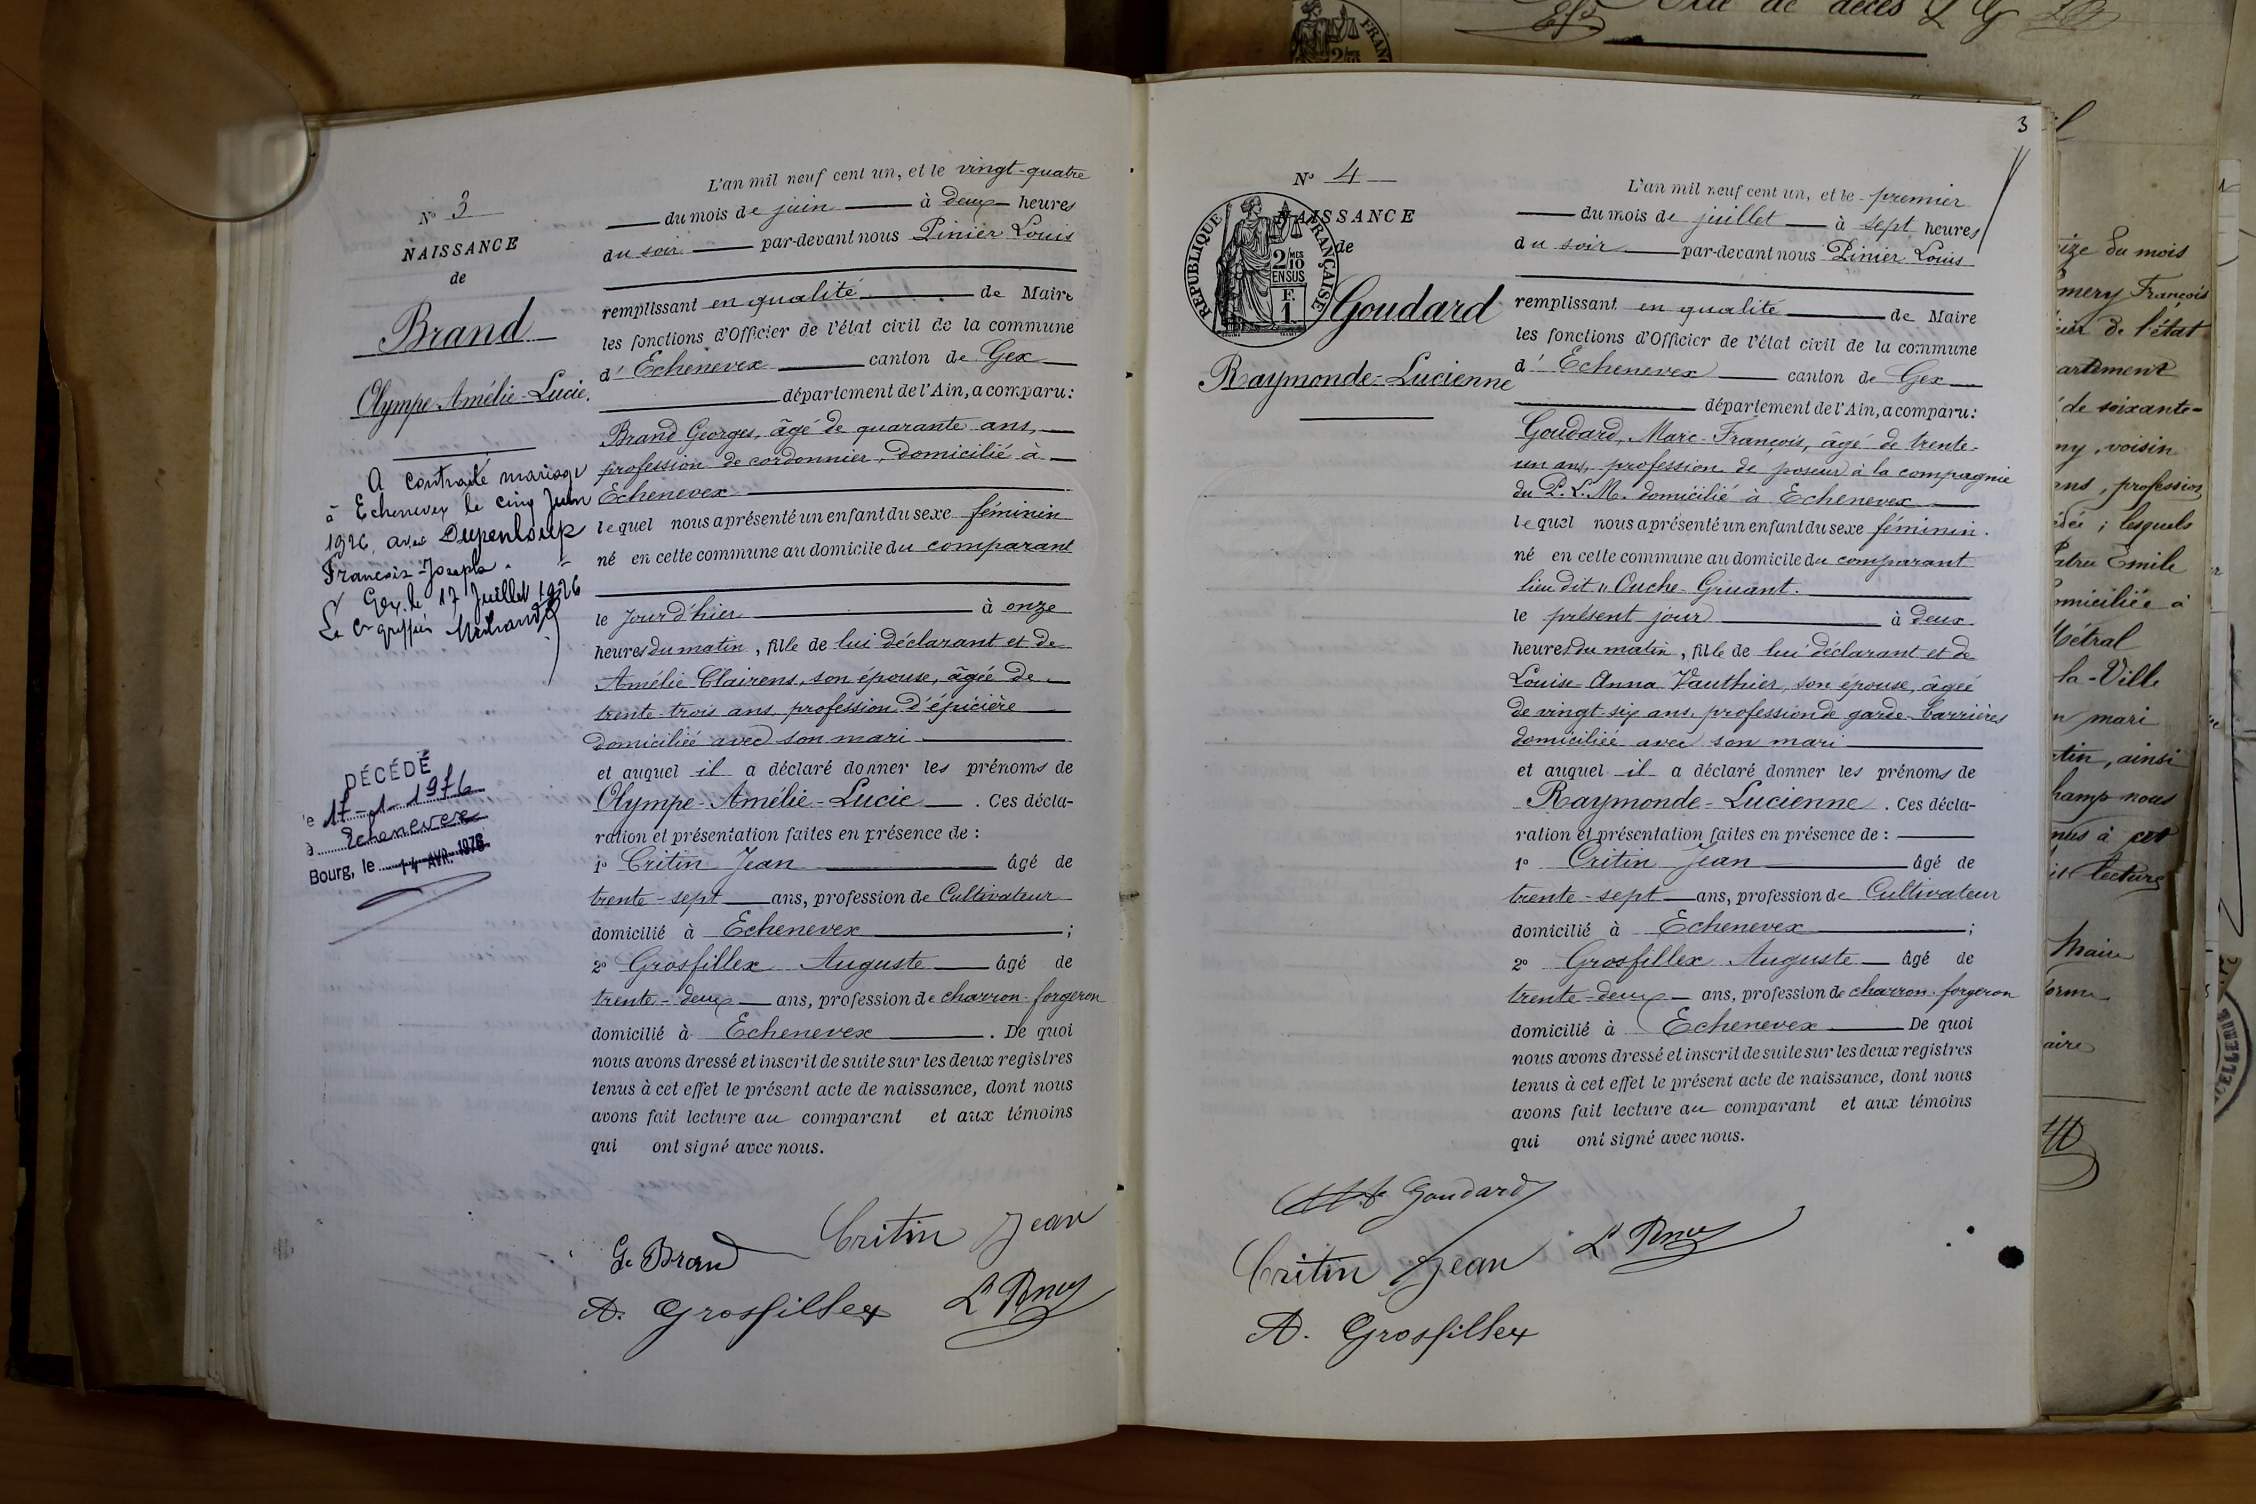 Acte de décès
FRANÇ
2/10
N° 3
NAISSANCE
de
Brand
Olympe-Amélie-Lucie.
A contracté mariage
à Echenevex le cinq Juin
1926, avec Dupenloup
François-Joseph.
Gex, le 17 Juillet 1926
Le Cis greffier
DÉCÉDÉ
le 17-1-1976
à Echenevex
Bourg, le 14 AVR. 1976
L'an mil neuf cent un, et le vingt-quatre
du mois de juin à deux heures
du soir par-devant nous Pinier Louis
remplissant en qualité de Maire
les fonctions d'Officier de l'état civil de la commune
d' Echenevex canton de Gex
département de l'Ain, a comparu:
Brand Georges, âgé de quarante ans,
profession de cordonnier, domicilié à
Echenevex
lequel nous a présenté un enfant du sexe féminin
né en cette commune au domicile du comparant
le jour d'hier à onze
heures du matin, fille de lui déclarant et de
Amélie Clairens, son épouse, âgée de
trente-trois ans, profession d'épicière
domiciliée avec son mari
et auquel il a déclaré donner les prénoms de
Olympe-Amélie-Lucie. Ces décla-
ration et présentation faites en présence de :
1° Critin Jean âgé de
trente-sept ans, profession de Cultivateur
domicilié à Echenevex ;
2° Grosfillex Auguste âgé de
trente-deux ans, profession de charron-forgeron
domicilié à Echenevex. De quoi
nous avons dressé et inscrit de suite sur les deux registres
tenus à cet effet le présent acte de naissance, dont nous
avons fait lecture au comparant et aux témoins
qui ont signé avec nous.
G. Brand Critin Jean
A. Grosfillex
3
N° 4
NAISSANCE
de
RÉPUBLIQUE FRANÇAISE
2/10 MES
EN SUS
F.
1
Goudard
Raymonde-Lucienne
L'an mil neuf cent un, et le premier
du mois de juillet à sept heures
du soir par-devant nous Pinier Louis
remplissant en qualité de Maire
les fonctions d'Officier de l'état civil de la commune
d' Echenevex canton de Gex
département de l'Ain, a comparu:
Goudard, Marc-François, âgé de trente-
un ans, profession de poseur à la compagnie
du P. L. M. domicilié à Echenevex
lequel nous a présenté un enfant du sexe féminin.
né en cette commune au domicile du comparant
lieu dit "Ouche-Gruant.
le présent jour à deux
heures du matin, fille de lui déclarant et de
Louise-Anna Vauthier, son épouse, âgée
de vingt-six ans, profession de garde-barrières
domiciliée avec son mari
et auquel il a déclaré donner les prénoms de
Raymonde-Lucienne. Ces décla-
ration et présentation faites en présence de :
1° Critin Jean âgé de
trente-sept ans, profession de Cultivateur
domicilié à Echenevex ;
2° Grosfillex Auguste âgé de
trente-deux ans, profession de charron-forgeron
domicilié à Echenevex De quoi
nous avons dressé et inscrit de suite sur les deux registres
tenus à cet effet le présent acte de naissance, dont nous
avons fait lecture au comparant et aux témoins
qui ont signé avec nous.
Goudard
Critin Jean
A. Grosfillex
du mois
François
de l'état
de soixante-
voisin
profession
lesquels
Emile
domiciliée à
Métral
la-Ville
mari
ainsi
nous
à cet
lecture
Maire